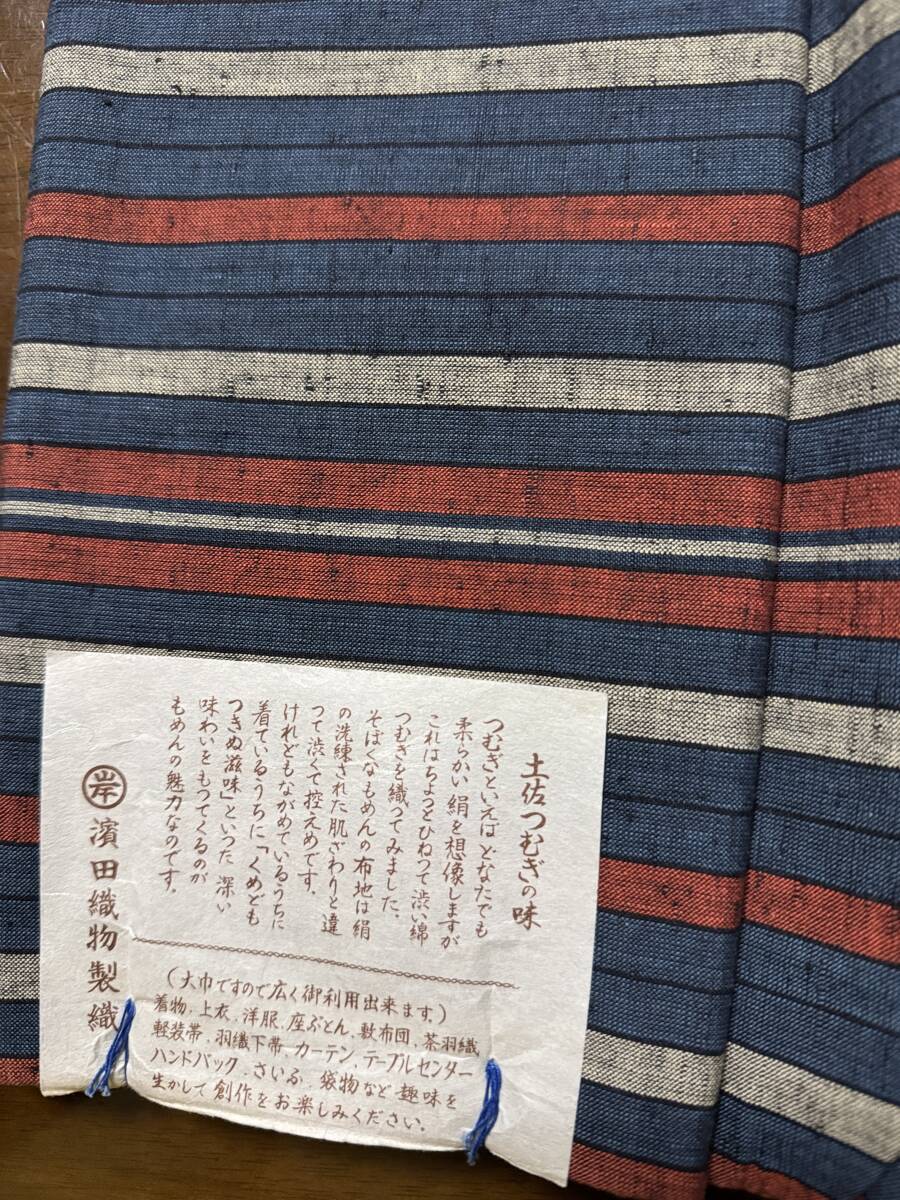 土佐つむぎの味
つむぎといえばどなたでも
柔らかい絹を想像しますが
これはちょっとひねつて渋い綿
つむぎを織ってみました。
そぼくなもめんの布地は絹
の洗練された肌ざわりと違
って渋くて控えめです。
けれどもながめているうちに
着ているうちに「くめども
つきぬ滋味」といった深い
味わいをもつてくるのが
もめんの魅力なのです。
岸 濱田織物製織
(大巾ですので広く御利用出来ます)
着物、上衣、洋服、座ぶとん、敷布団、茶羽織
軽装帯、羽織下帯、カーテン、テーブルセンター
ハンドバック、さいふ、袋物など趣味を
生かして創作をお楽しみください。